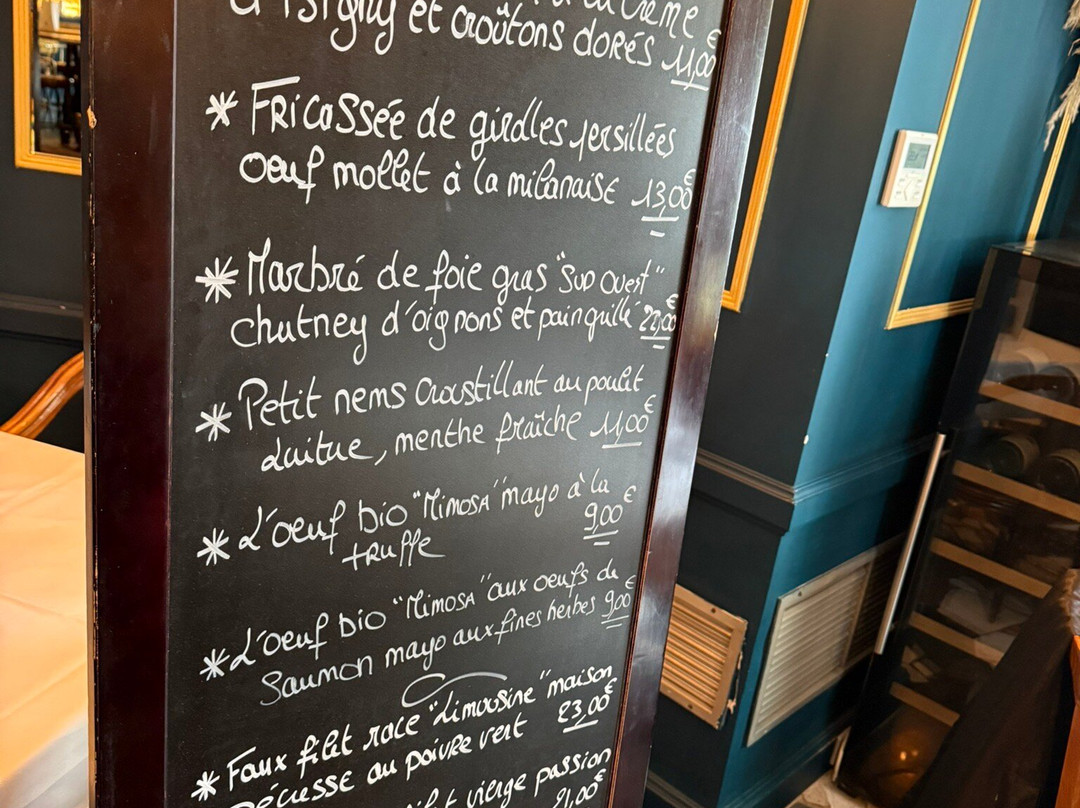 d'Isigny et croûtons dorés 11,00€
* Fricassée de girolles persillées
oeuf mollet à la milanaise 13,00€
* Marbré de foie gras "Sud Ouest"
chutney d'oignons et pain grillé 22,00€
* Petit nems croustillant au poulet
Laitue, menthe fraîche 11,00€
* L'oeuf bio "Mimosa" mayo à la
truffe 9,00€
* L'oeuf bio "Mimosa" aux oeufs de
Saumon mayo aux fines herbes 9,00€
* Faux filet race "Limousine" maison
au poivre vert 23,00€
vierge passion
21,00€